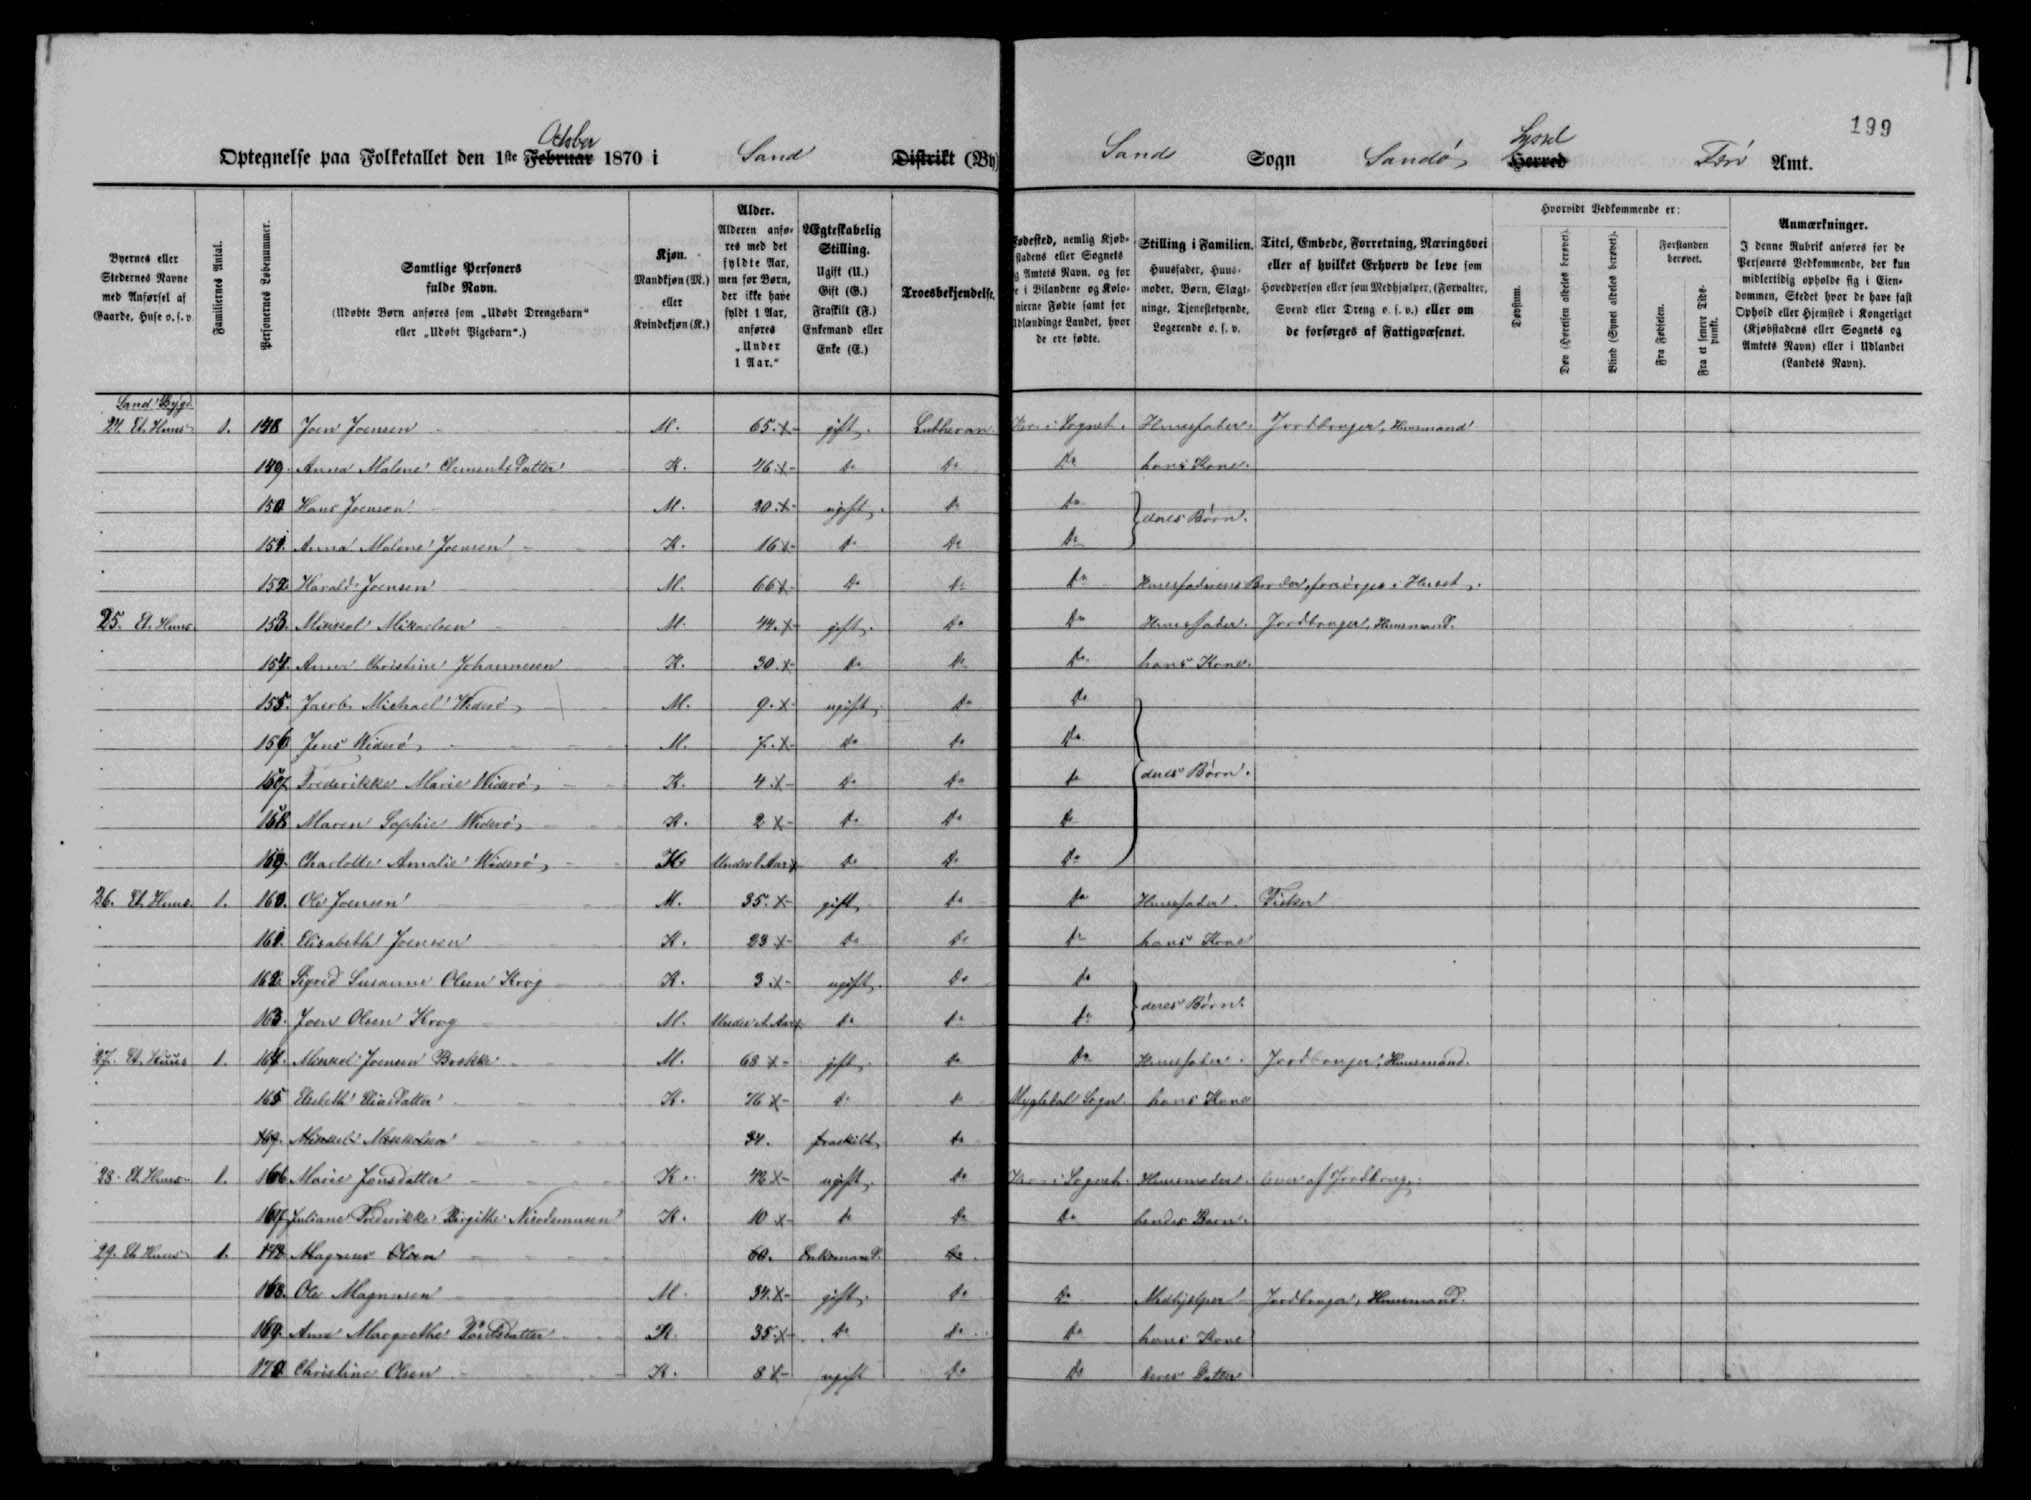 199
October Syssel
Optegnelse paa Folketallet den 1ste Februar 1870 i Sand Distrikt (By) Sands Sogn Sandø Herred Færø Amt.
Byernes eller Stedernes Navne med Anførsel af Gaarde, Huse o.s.v.
Familiernes Antal.
Personernes Løbenummer.
Samtlige Personers fulde Navn.
(Udøbte Børn anføres som „Udøbt Drengebarn“ eller „Udøbt Pigebarn“.)
Kjøn.
Mandkjøn (M.) eller Kvindekjøn (K.)
Alder.
Alderen anføres med det fyldte Aar, men for Børn, der ikke have fyldt 1 Aar, anføres „Under 1 Aar.“
Ægteskabelig Stilling.
Ugift (U.) Gift (G.) Fraskilt (F.) Enkemand eller Enke (E.)
Troesbekjendelse.
Fødested, nemlig Kjøbstadens eller Sognets og Amtets Navn, og for de i Bilandene og Kolonierne Fødte samt for Udlændinge Landet, hvor de ere fødte.
Stilling i Familien.
Huusfader, Huusmoder, Børn, Slægtninge, Tjenestetyende, Logerende o.s.v.
Titel, Embede, Forretning, Næringsvei eller af hvilket Erhverv de leve som Hovedperson eller som Medhjælper, (Forvalter, Svend eller Dreng o.s.v.) eller om de forsørges af Fattigvæsenet.
Hvorvidt Vedkommende er:
Døvstum.
Døv (Hørelsen aldeles berøvet).
Blind (Synet aldeles berøvet).
Forstanden berøvet.
Fra Fødselen.
Fra et senere Tidspunkt.
Anmærkninger.
I denne Rubrik anføres for de Personers Vedkommende, der kun midlertidig opholde sig i Eiendommen, Stedet hvor de have fast Ophold eller Hjemsted i Kongeriget (Kjøbstadens eller Sognets og Amtets Navn) eller i Udlandet (Landets Navn).
Sand Bygd
24. Et Huus 1. 148 Joen Joensen M. 65. x gift. Lutheran Her i Sognet. Huusfader. Jordbruger, Huusmand
149. Anna Malene Clements Datter K. 46. x Do Do Do hans Kone.
150 Hans Joensen M. 20. x ugift. Do Do
deres Børn.
151. Anna Malene Joensen K. 16 x Do Do Do
152. Harald Joensen M. 66 x Do Do Do Huusfaderens Broder, forsørges i Huset.
25. Et Huus 153. Mikkel Mikaelsen M. 44. x gift. Do Do Huusfader. Jordbruger, Huusmand.
154. Anna Christine Johannesen K. 30. x Do Do Do hans Kone.
155. Jacob Michael Viderø M. 9. x ugift. Do Do
156 Jens Viderø M. 7. x Do Do Do
157 Frederikke Marie Viderø K. 4. x Do Do Do deres Børn.
158 Maren Sophie Viderø K. 2 x Do Do Do
159. Charlotte Amalie Viderø K. Under 1 Aar x Do Do Do
26. Et Huus. 1. 160. Ole Joensen M. 35. x gift Do Do Huusfader. Fisker
161. Elisabeth Joensen K. 23 x Do Do Do hans Kone
162. Sigrid Susanne Olsen Krog K. 3. x ugift. Do Do
deres Børn.
163. Joen Olsen Krog M. Under 1 Aar x Do Do Do
27. Et Huus 1. 164. Mikkel Joensen Brekke M. 68 x gift. Do Do Huusfader. Jordbruger, Huusmand.
165 Elsebeth Elias Datter K. 46 x Do Do Mygledal Sogn. hans Kone
169. Mikkel Mikkelsen 34. fraskilt Do
28. Et Huus 1. 166 Marie Jensdatter K. 42 x ugift. Do Her i Sognet. Huusmoder. lever af Jordbrug.
167 Juliane Frederikke Birgithe Nicodemusen K. 10 x Do Do Do hendes Barn.
29. Et Huus 1. Magnus Olsen 60. Enkemand. Do
168. Ole Magnusen M. 34. x gift. Do Do Medhjelper Jordbruger, Huusmand.
169. Anne Margrethe K. 35. x Do Do Do hans Kone
170 Christine Olsen K. 8 x ugift Do Do deres Datter